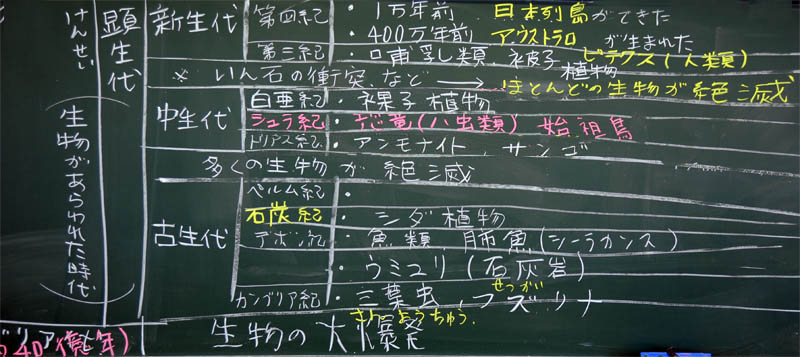 顕生代
けんせい
（生物があらわれた時代）
新生代
第四紀
・1万年前 日本列島ができた
・400万年前 アウストラロ
ピテクス（人類）
が生まれた
第三紀
・口甫乳し類、被子植物
※ いん石の衝突など → ほとんどの生物が絶滅
中生代
白亜紀・裸子植物
ジュラ紀・恐竜（ハ虫類） 始祖鳥
トリアス紀・アンモナイト、サンゴ
多くの生物が絶滅
古生代
ペルム紀・
石炭紀・シダ植物
デボン紀・魚類、肺魚（シーラカンス）
・ウミユリ（石灰岩）
せっかい
カンブリア紀・三葉虫、フズリナ
さんようちゅう
生物の大爆発